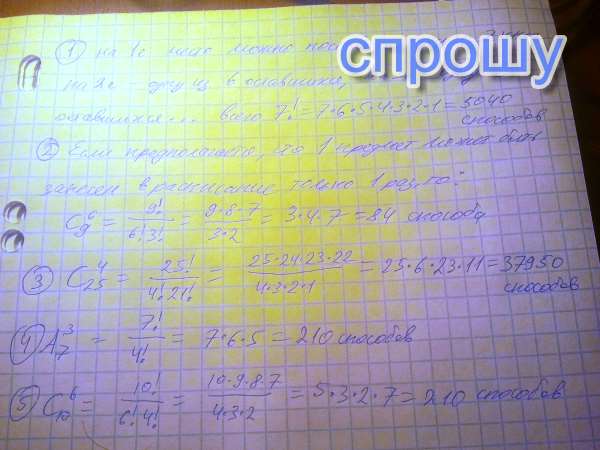 ① на 1е место можно пос
спрошу
на 2е в оставшихся,
оставшихся... всего 7! = 7·6·5·4·3·2·1 = 3040
способов
② Если предполагать, что 1 предмет может быть
занесен в расписание только 1 раз, то:
C₉⁶ = 9!/(6!3!) = (9·8·7)/(3·2) = 3·4·7 = 84 способа
③ C₂₅⁴ = 25!/(4!21!) = (25·24·23·22)/(4·3·2·1) = 25·6·23·11 = 37950
способов
④ A₇³ = 7!/4! = 7·6·5 = 210 способов
⑤ C₁₀⁶ = 10!/(6!4!) = (10·9·8·7)/(4·3·2) = 5·3·2·7 = 210 способов